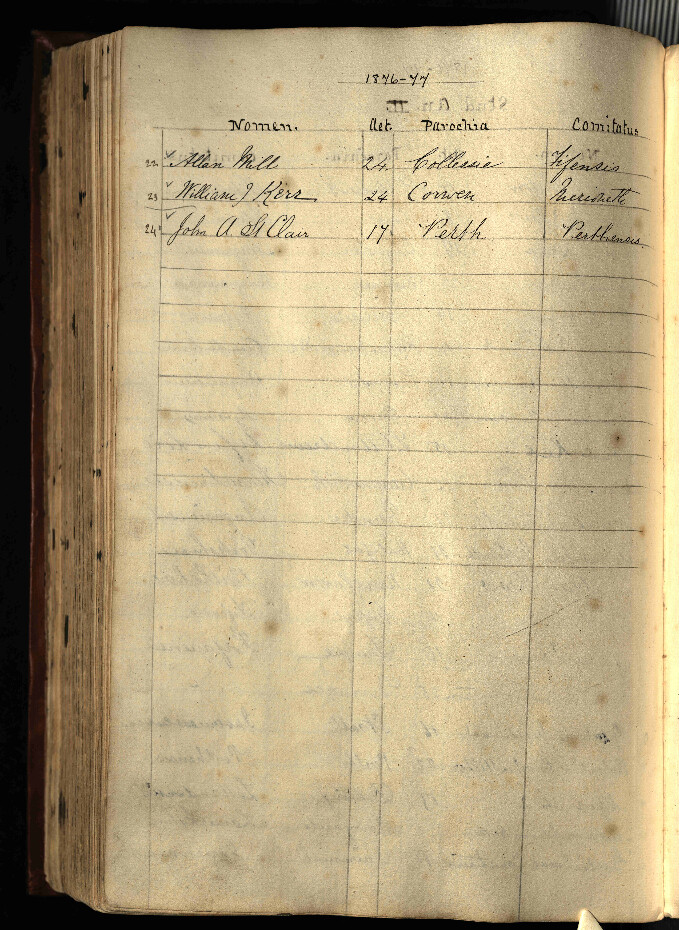 1876-77
Nomen. Aet. Parochia Comitatus
22 Allan Mill 24 Collessie Fifensis
23 William J Kerr 24 Corwen Merioneth
24 John A St Clair 17 Perth Perthensis